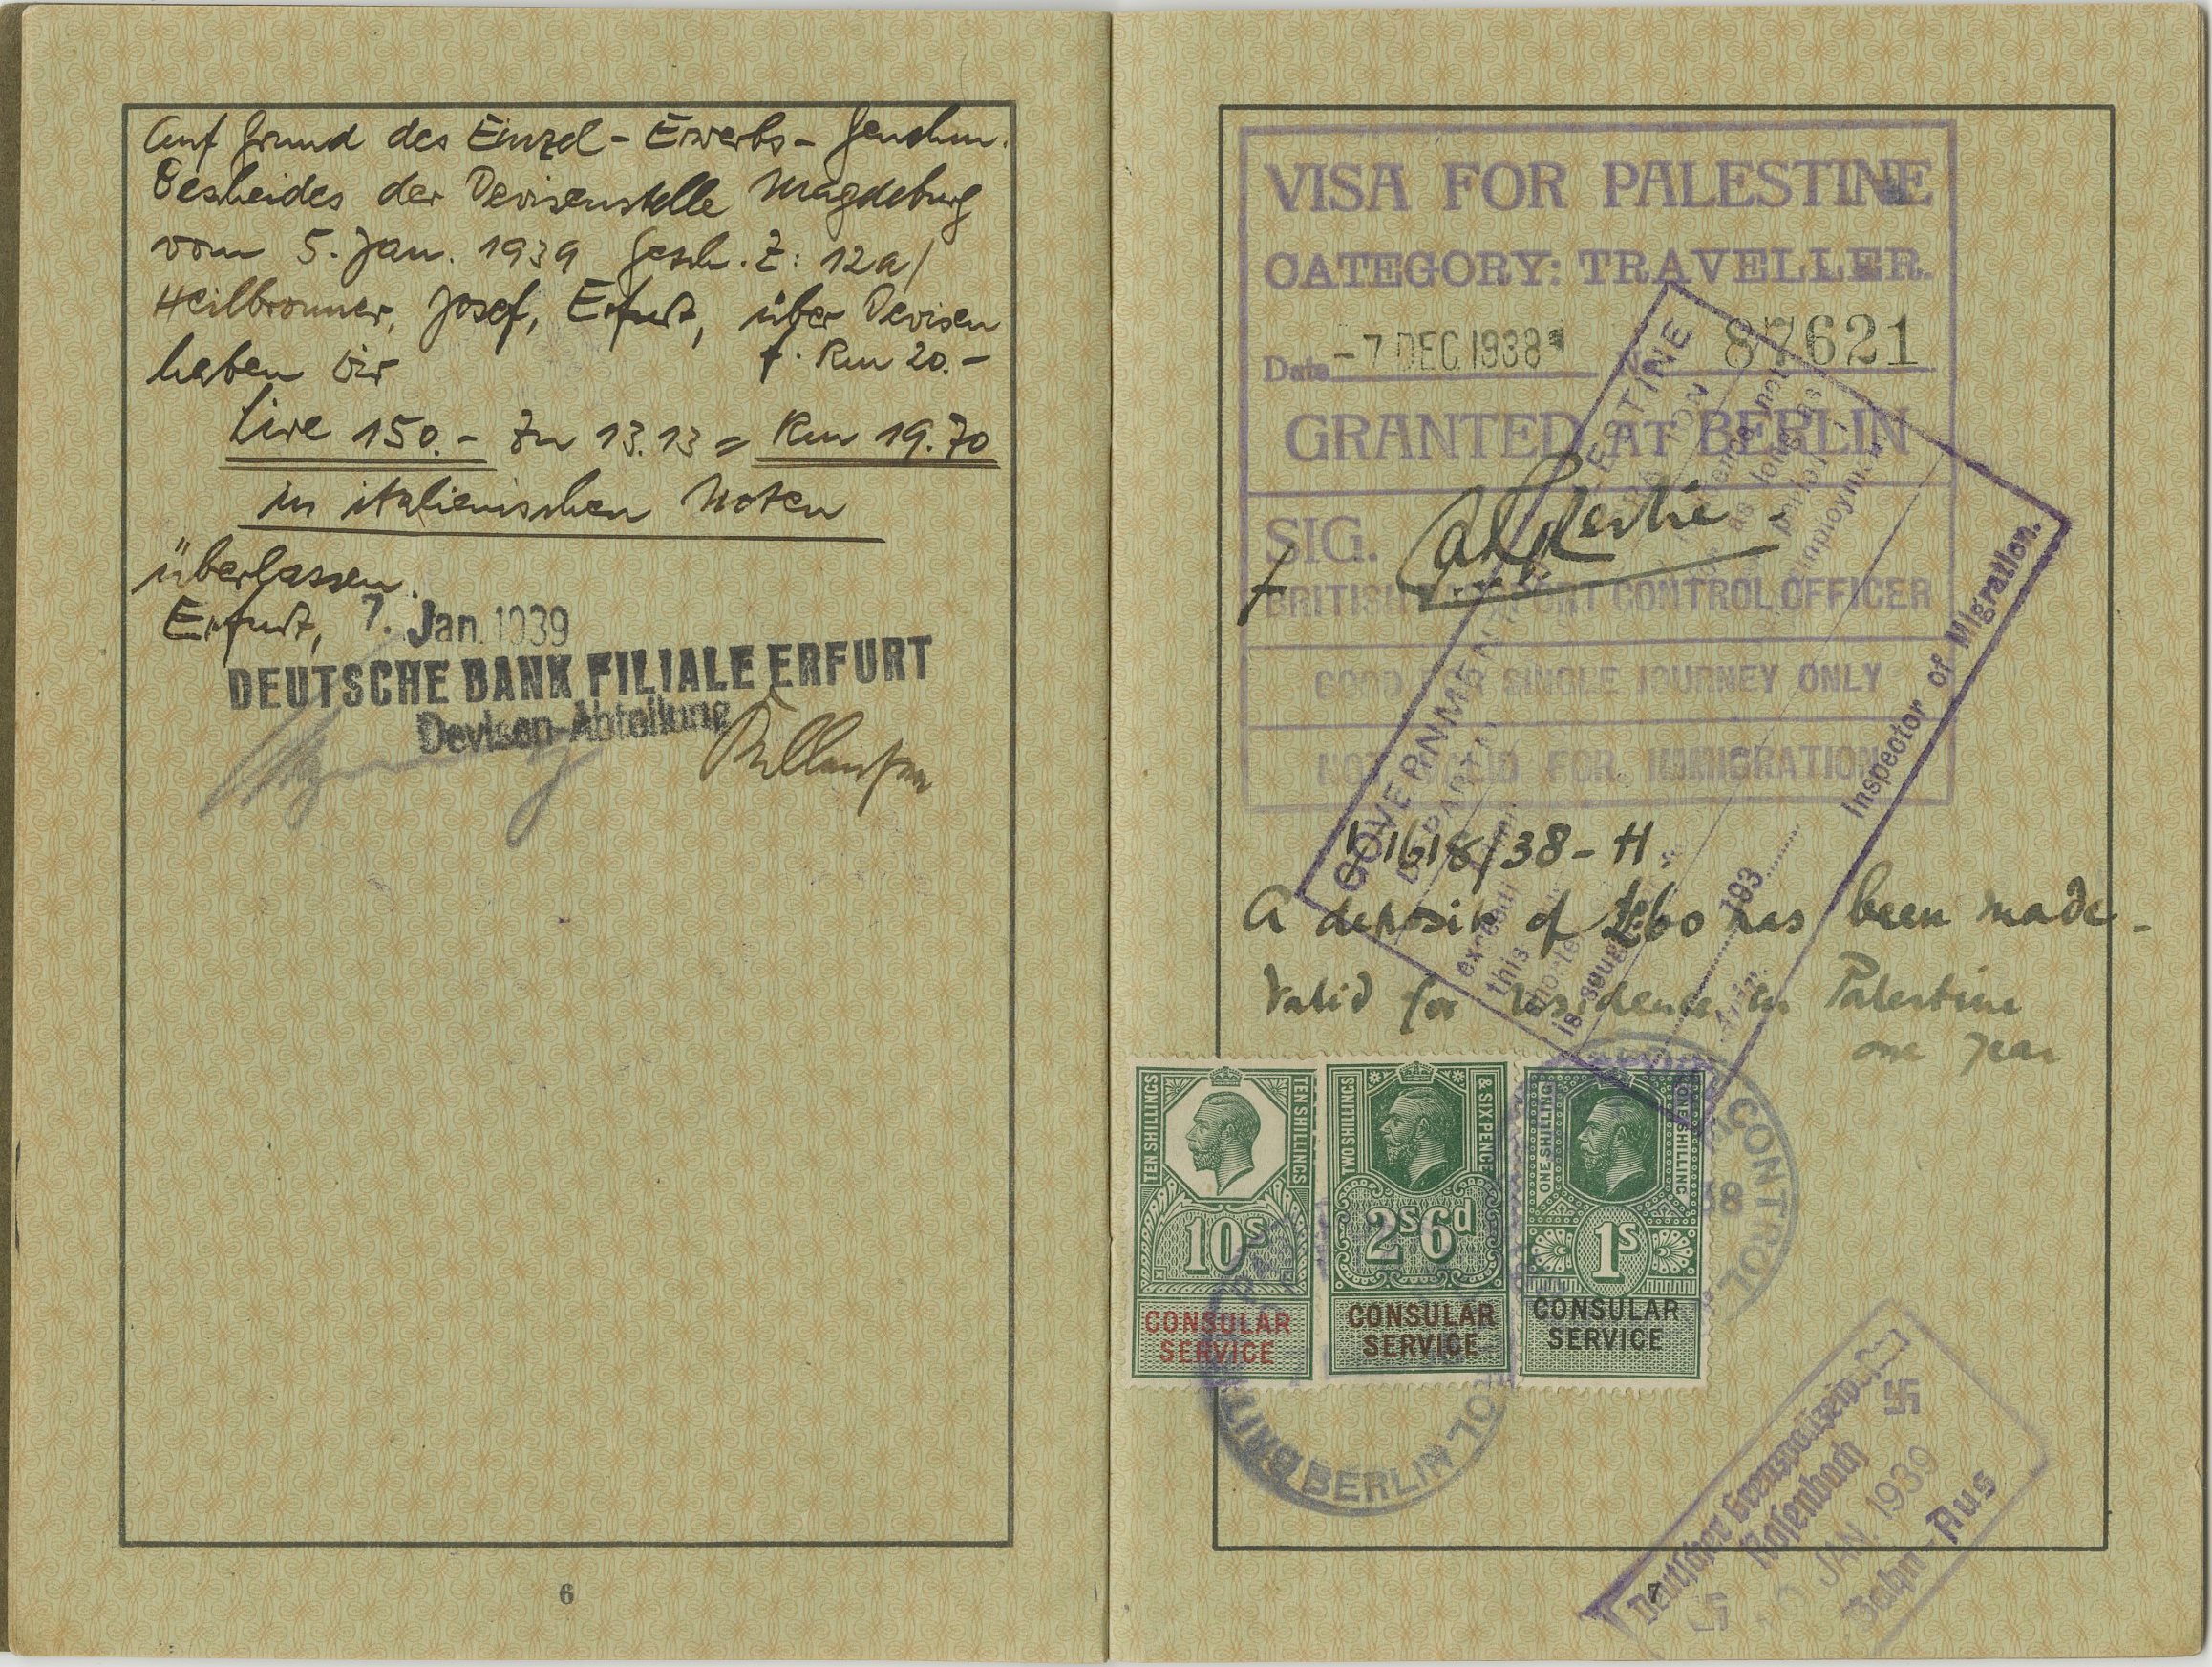 Auf Grund des Einzel-Erwerbs-Genehm.
Bescheides der Devisenstelle Magdeburg
vom 5. Jan. 1939 Gesch. Z: 12a/
Heilbronner, Josef, Erfurt, über Devisen
haben wir f. Rm 20.-
Lire 150.- zu 13.13 = Rm 19.70
in italienischen Noten
überlassen.
Erfurt, 7. Jan. 1939
DEUTSCHE BANK FILIALE ERFURT
Devisen-Abteilung
6
VISA FOR PALESTINE
CATEGORY: TRAVELLER.
Date -7 DEC 1938 No 87621
GRANTED AT BERLIN
SIG.
BRITISH PASSPORT CONTROL OFFICER
GOOD FOR SINGLE JOURNEY ONLY
NOT VALID FOR IMMIGRATION
GOVERNMENT PALESTINE
Inspector of Migration.
193
11618/38-H.
A deposit of £60 has been made-
Valid for residence in Palestine
one year
TEN SHILLINGS
TEN SHILLINGS
10s
CONSULAR
SERVICE
TWO SHILLINGS
& SIX PENCE
2s6d
CONSULAR
SERVICE
ONE SHILLING
ONE SHILLING
1s
CONSULAR
SERVICE
CONTROL
38
BERLIN
Deutscher Grenzpolizeiposten
Rosenbach
JAN. 1939
Bahn-Aus
7